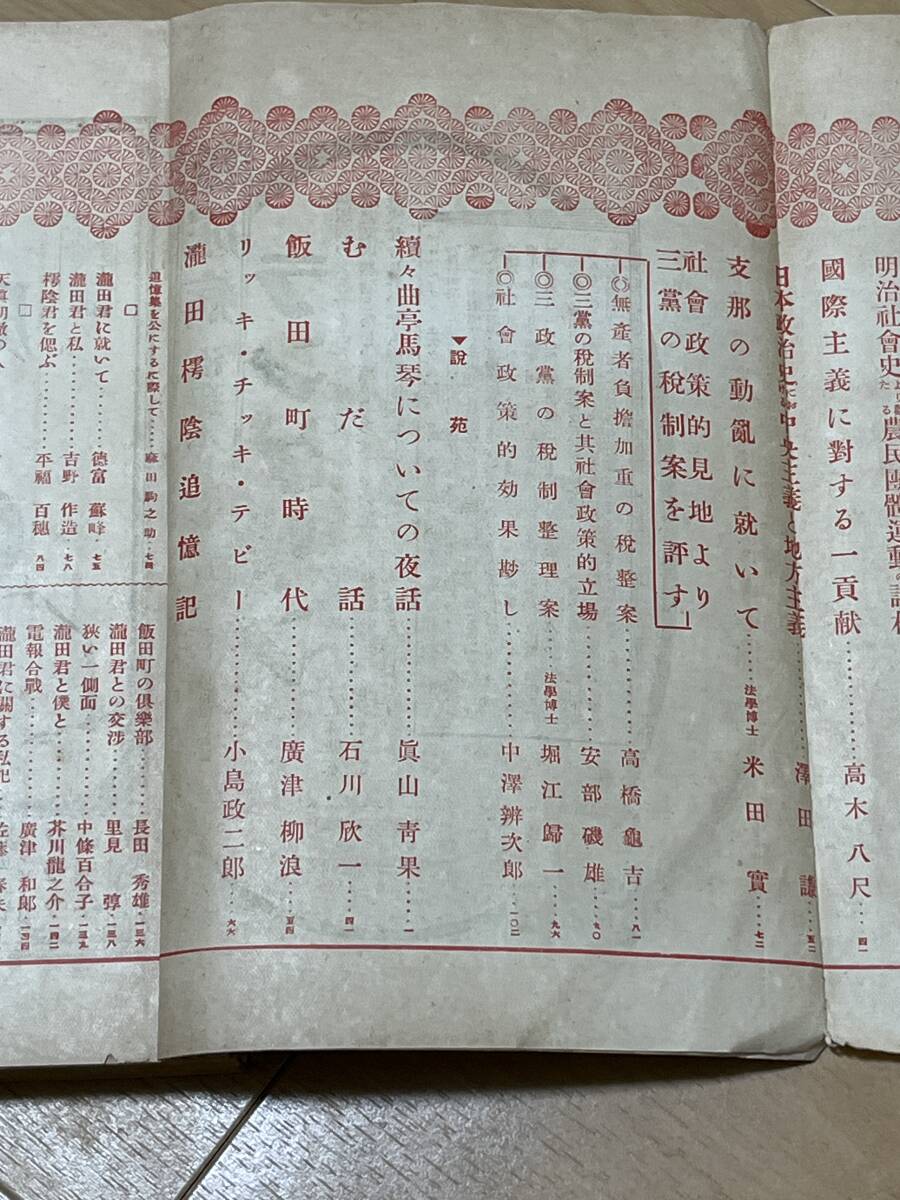 明治社會史
農民團體運動の
國際主義に對する一貢献…………高木八尺…四一
日本政治史に於ける中央主義と地方主義………澤田謙…五二
支那の動亂に就いて……法學博士 米田實…七二
社會政策的見地より三黨の税制案を評す
◎無產者負擔加重の税整案……高橋龜吉…八一
◎三黨の税制案と其社會政策的立場……安部磯雄…九〇
◎三政黨の税制整理案…法學博士 堀江歸一…九六
◎社會政策的効果尠し……中澤辨次郎…一〇二
▼說苑
續々曲亭馬琴についての夜話……眞山青果……一
むだ話……石川欣一…四一
飯田町時代……廣津柳浪…五四
リッキ・チッキ・テビー……小島政二郎…六六
瀧田樗陰追憶記
追憶集を公にするに際して……麻田駒之助・七四
□
瀧田君に就いて……德富蘇峰・七五
瀧田君と私……吉野作造・七八
樗陰君を偲ぶ……平福百穗・八四
□
飯田町の俱樂部……長田秀雄・一三六
瀧田君との交渉……里見弴・一三八
狹い一側面……中條百合子・一三九
瀧田君と僕と……芥川龍之介・一四二
電報合戰……廣津和郎・一四四
瀧田君に關する私記